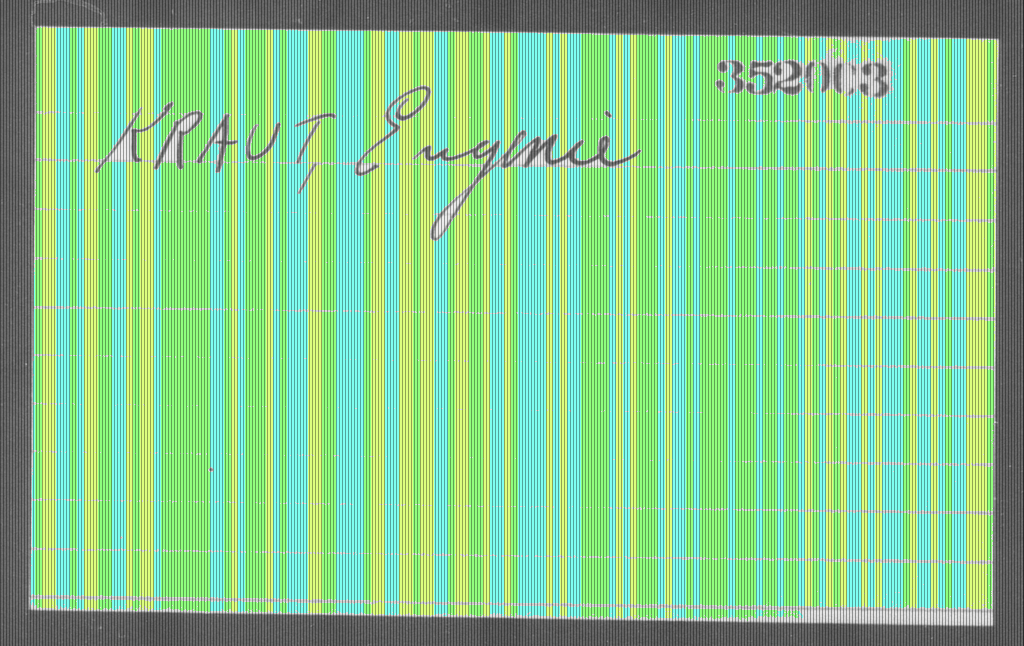 352003
KRAUT, Eugenie